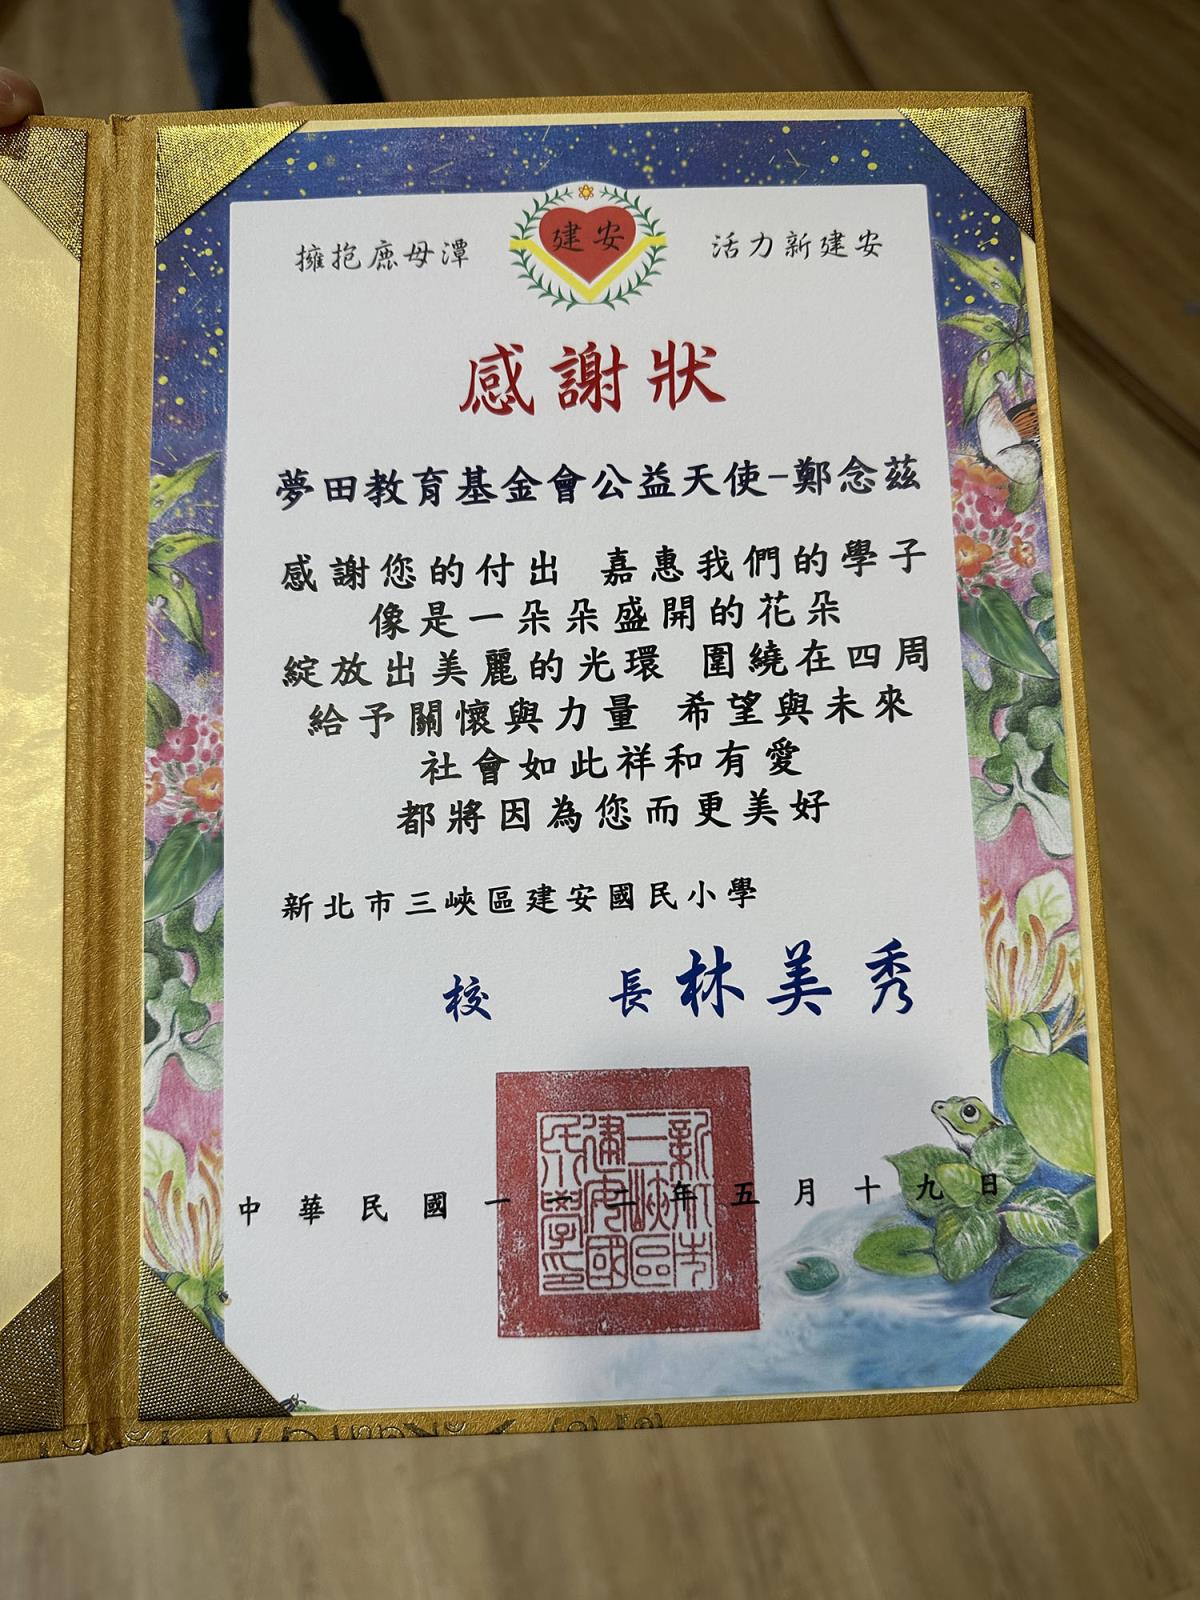 擁抱鹿母潭 建安 活力新建安
感謝狀
夢田教育基金會公益天使-鄭念茲
感謝您的付出 嘉惠我們的學子
像是一朵朵盛開的花朵
綻放出美麗的光環 圍繞在四周
給予關懷與力量 希望與未來
社會如此祥和有愛
都將因為您而更美好
新北市三峽區建安國民小學
校 長 林美秀
新北市三峽區建安國民小學印
中華民國一一二年五月十九日